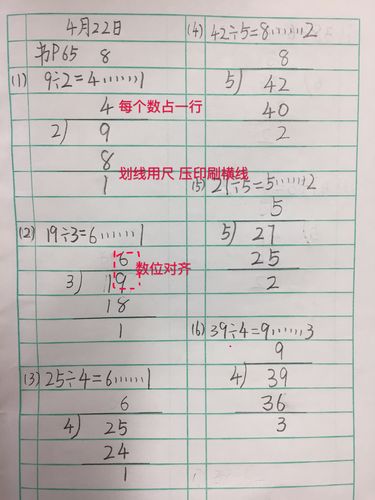 4月22日
书P65 8
(1) 9÷2=4……1
4
2) 9
8
1
每个数占一行
划线用尺 压印刷横线
(2) 19÷3=6……1
6
3) 19
18
1
数位对齐
(3) 25÷4=6……1
6
4) 25
24
1
(4) 42÷5=8……2
8
5) 42
40
2
(5) 27÷5=5……2
5
5) 27
25
2
(6) 39÷4=9……3
9
4) 39
36
3